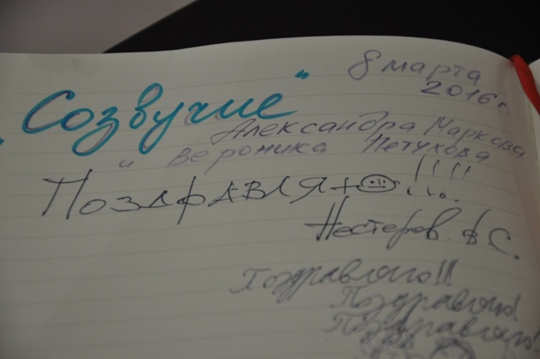 8 марта
2016 г
„Созвучие“
Александра Маркова
и Вероника Петухова
ПОЗДРАВЛЯ+☹!!!!
Нестеров. В С.
Поздравляю!!
Поздравляю!
Поздравляю!